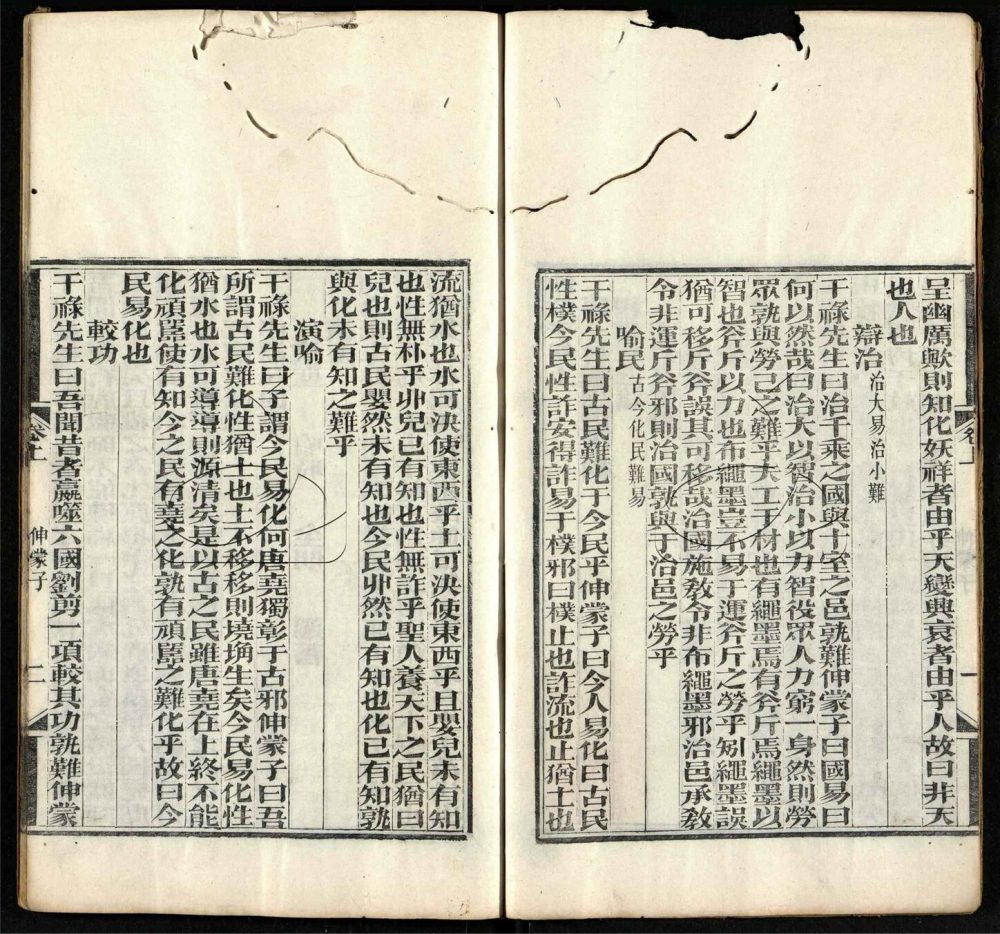 呈幽厲歟則知化妖祥者由乎天變興衰者由乎人故曰非天
也人也
辯治治大易治小難
干祿先生曰治千乘之國與十室之邑孰難伸蒙子曰國易曰
何以然哉曰治大以智治小以力智役眾人力窮一身然則勞
眾孰與勞己之難乎夫工于材也有繩墨焉有斧斤焉繩墨以
智也斧斤以力也布繩墨豈不易于運斧斤之勞乎矧繩墨誤
猶可移斤斧誤其可移哉治國施教令非布繩墨邪治邑承教
令非運斤斧邪則治國孰與于治邑之勞乎
喻民古今化民難易
干祿先生曰古民難化于今民乎伸蒙子曰今人易化曰古民
性樸今民性詐安得詐易于樸邪曰樸止也詐流也止猶土也
卷上
一
流猶水也水可決使東西乎土可決使東西乎且嬰兒未有知
也性無朴乎丱兒已有知也性無詐乎聖人養天下之民猶曰
兒也則古民嬰然未有知也今民丱然已有知也化已有知孰
與化未有知之難乎
演喻
干祿先生曰子謂今民易化何唐堯獨彰于古邪伸蒙子曰吾
所謂古民難化性猶土也土不移移則墝埆生矣今民易化性
猶水也水可導導則源清矣是以古之民雖唐堯在上終不能
化頑嚚使有知今之民有堯之化孰有頑嚚之難化乎故曰今
民易化也
較功
干祿先生曰吾聞昔者嬴噬六國劉剪一項較其功孰難伸蒙
卷上
伸蒙子
二